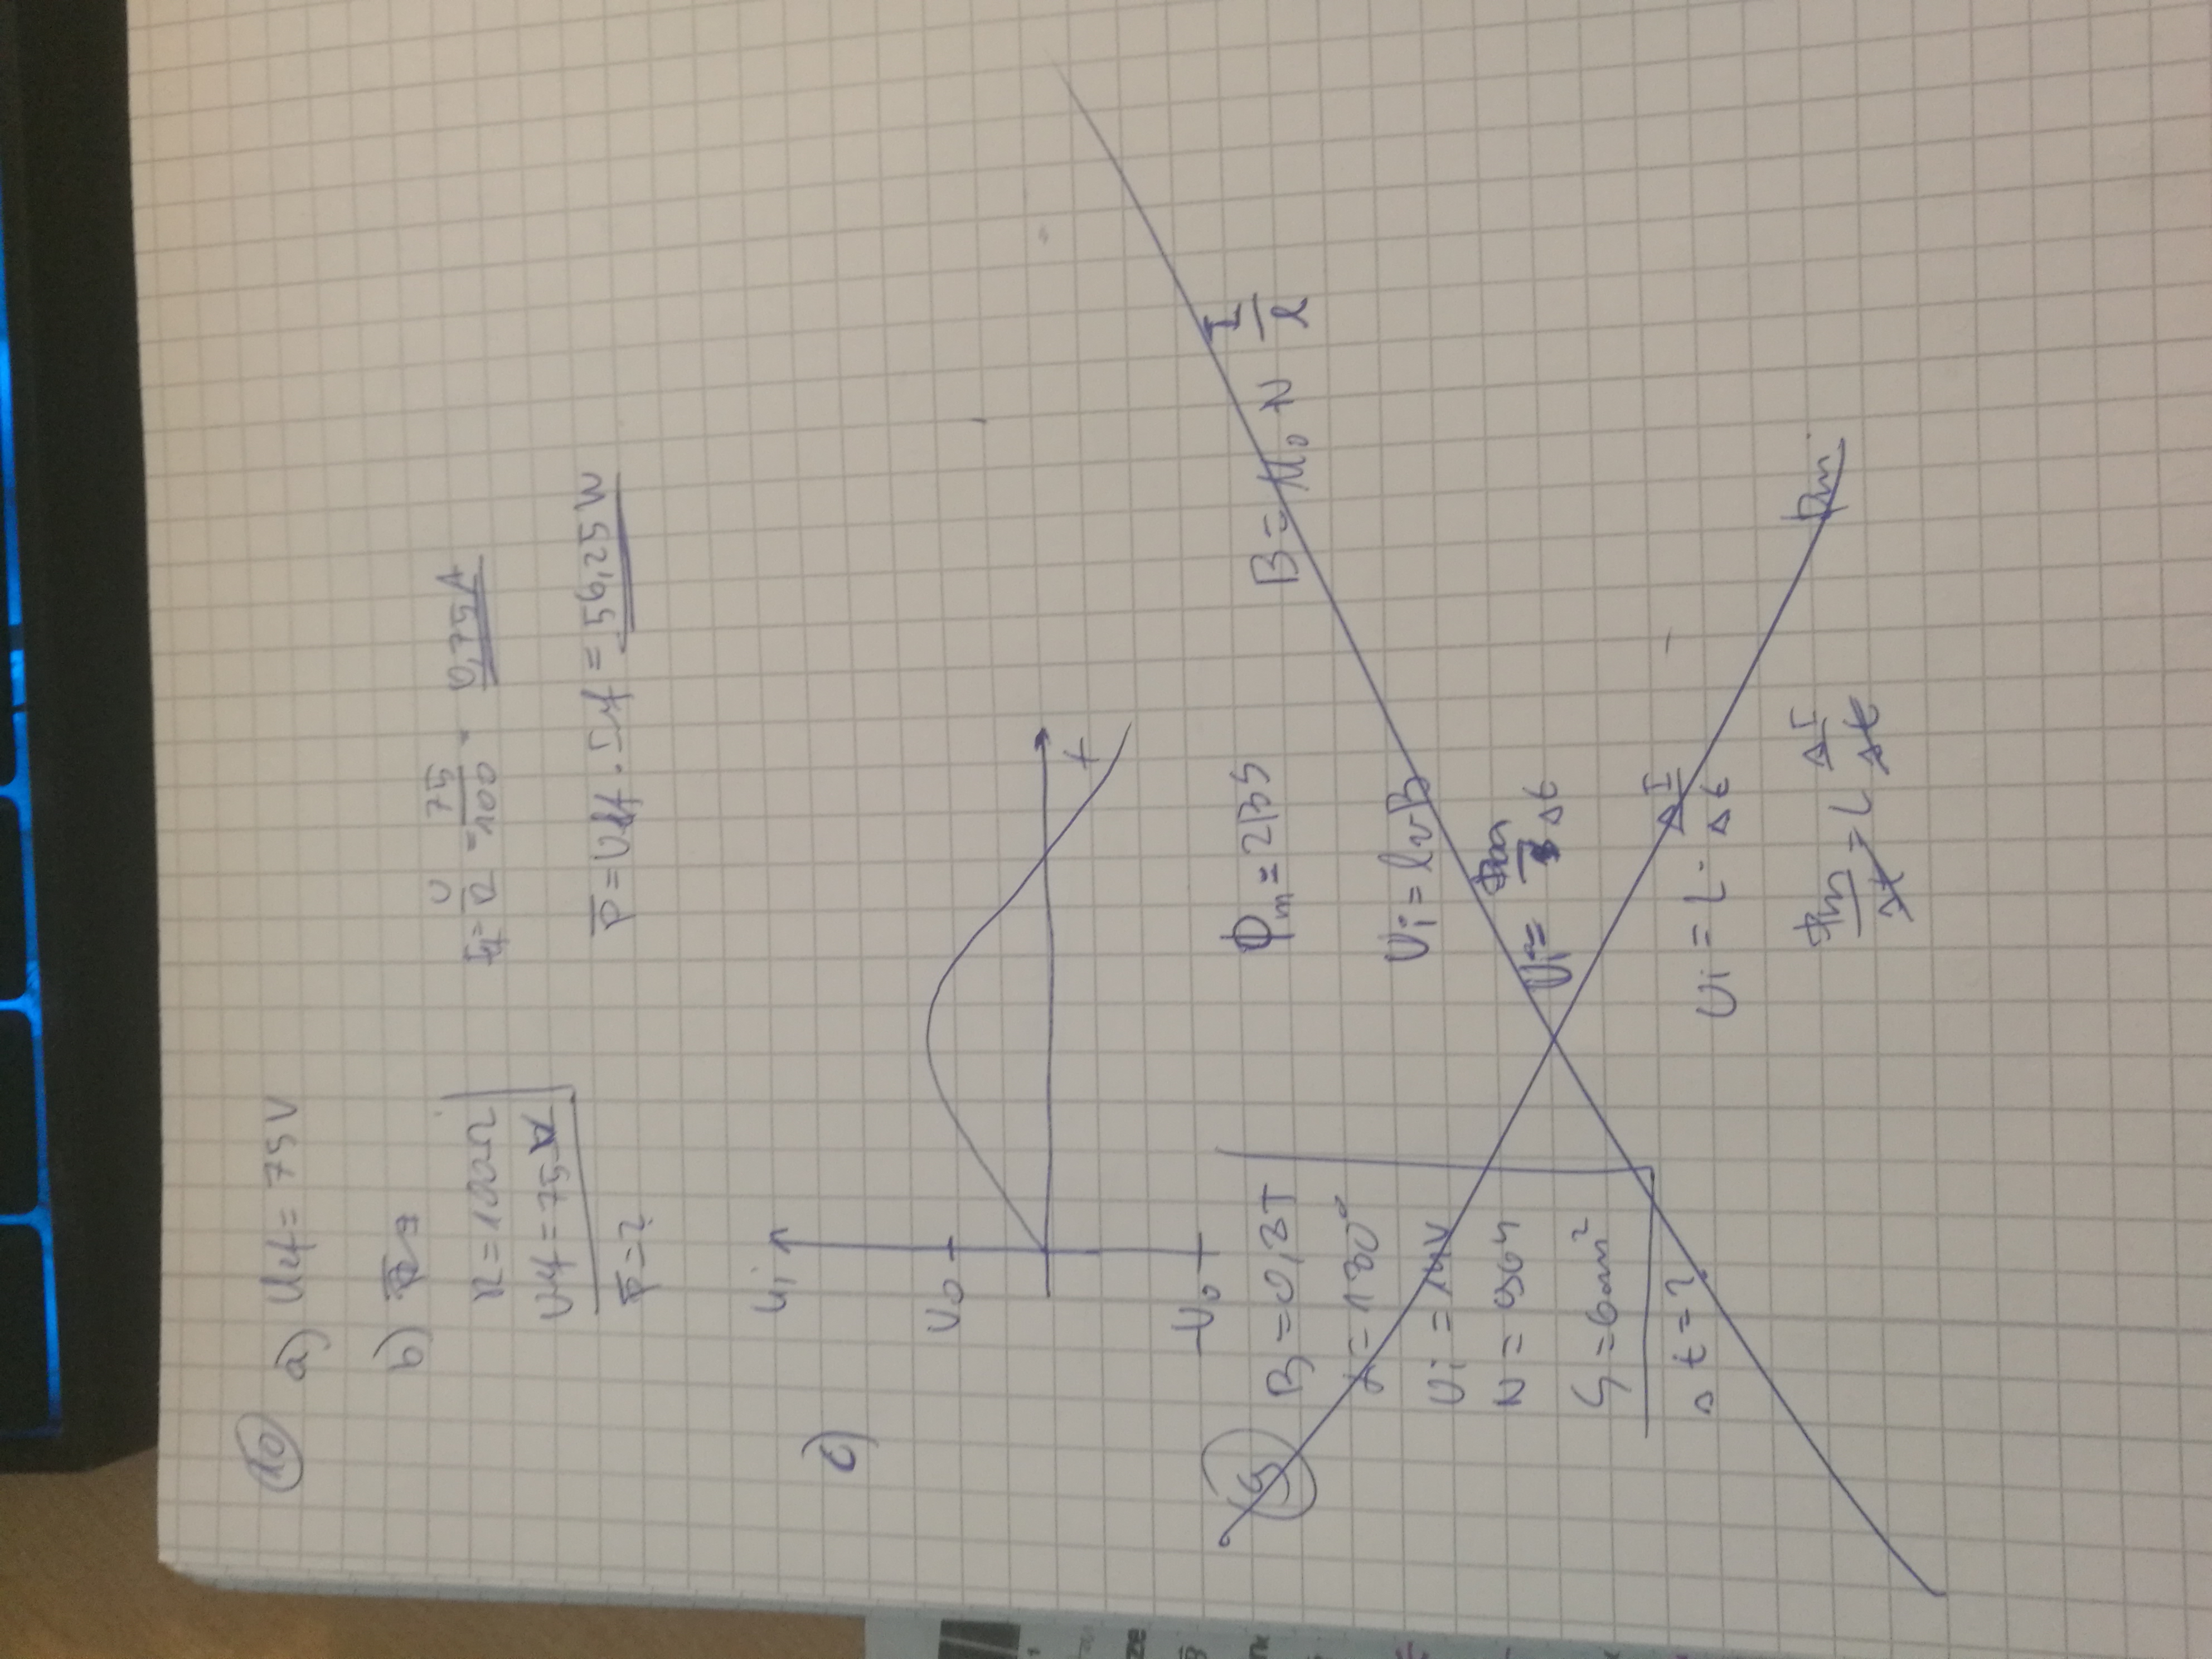 10 a) Uef = 75V
b)
R = 100Ω
Uef = 75V
P̄ = ?
Ief = U/R = 75/100 = 0,75A
P̄ = Uef · Ief = 56,25W
c)
ui
U0
-U0
t
15
B = 0,3T
α = 180°
Ui = 14V
N = 9364
S = 6cm²
Δt = ?
Φm = 2BS
Ui = lvB
Ui = Φm/Δt
Ui = L · ΔI/Δt
Φm/Δt = L ΔI/Δt
Φm
B = μ0 N I/l